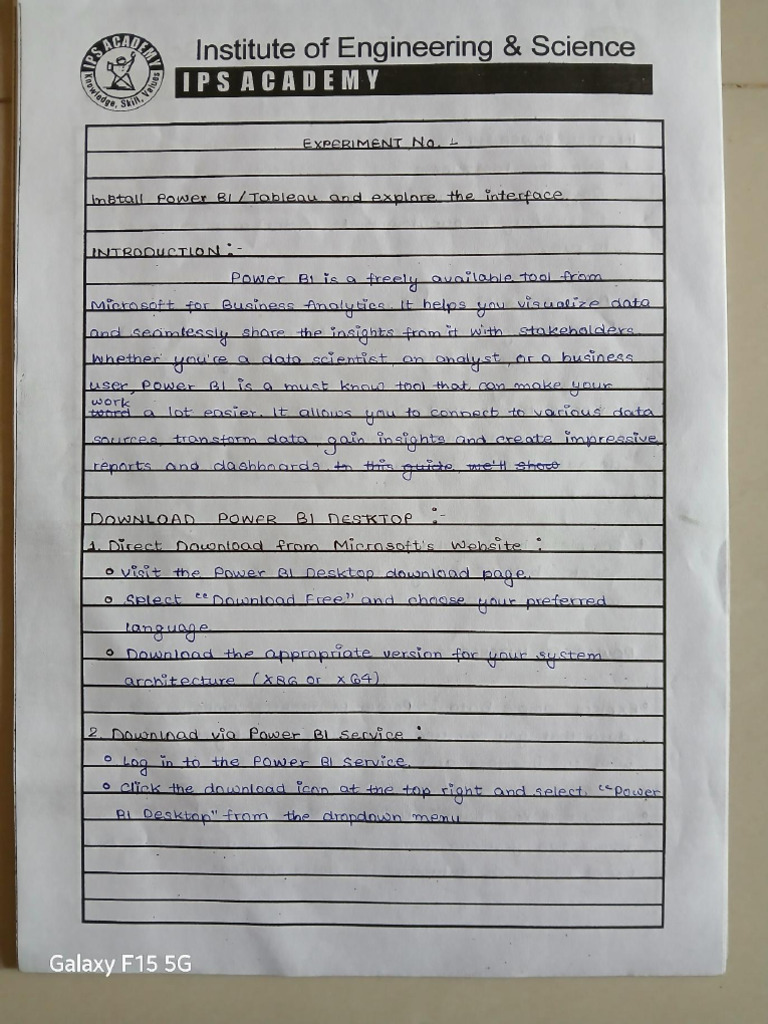 IPS ACADEMY
Knowledge, Skill, Values
Institute of Engineering & Science
IPS ACADEMY
EXPERIMENT No. 1
Install Power BI/Tableau and explore the interface.
INTRODUCTION :-
Power BI is a freely available tool from
Microsoft for Business Analytics. It helps you visualize data
and seamlessly share the insights from it with stakeholders.
Whether you're a data scientist, an analyst, or a business
user, Power BI is a must know tool that can make your
work
word a lot easier. It allows you to connect to various data
sources, transform data, gain insights and create impressive
reports and dashboards. In this guide, we'll show
DOWNLOAD POWER BI DESKTOP :-
1. Direct Download from Microsoft's Website :
Visit the Power BI Desktop download page.
Select "Download Free" and choose your preferred
language.
Download the appropriate version for your system
architecture (X86 or X64)
2. Download via Power BI Service :
Log in to the Power BI Service.
Click the download icon at the top right and select "Power
BI Desktop" from the dropdown menu
Galaxy F15 5G